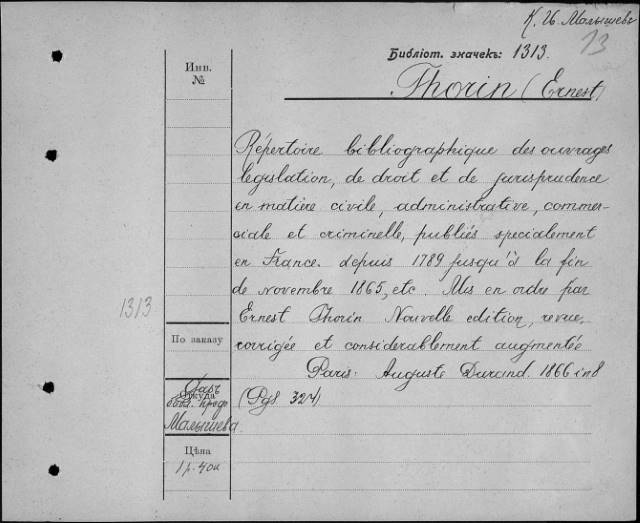 К. И. Малышевъ
13
Библіот. значекъ: 1313.
Thorin (Ernest)
Инв.
№
Répertoire bibliographique des ouvrages
legislation, de droit et de jurisprudence
en matière civile, administrative, commer-
ciale et criminelle, publiés specialement
en France. depuis 1789 jusqu'à la fin
de novembre 1865, etc. Mis en ordre par
Ernest Thorin Nouvelle edition, revue,
corrigée et considerablement augmentée
Paris: Auguste Durand. 1866 in 8
(Pgs 324)
1313
По заказу
Откуда
Даръ
проф.
Малышева.
Цѣна
1 р. 40 к